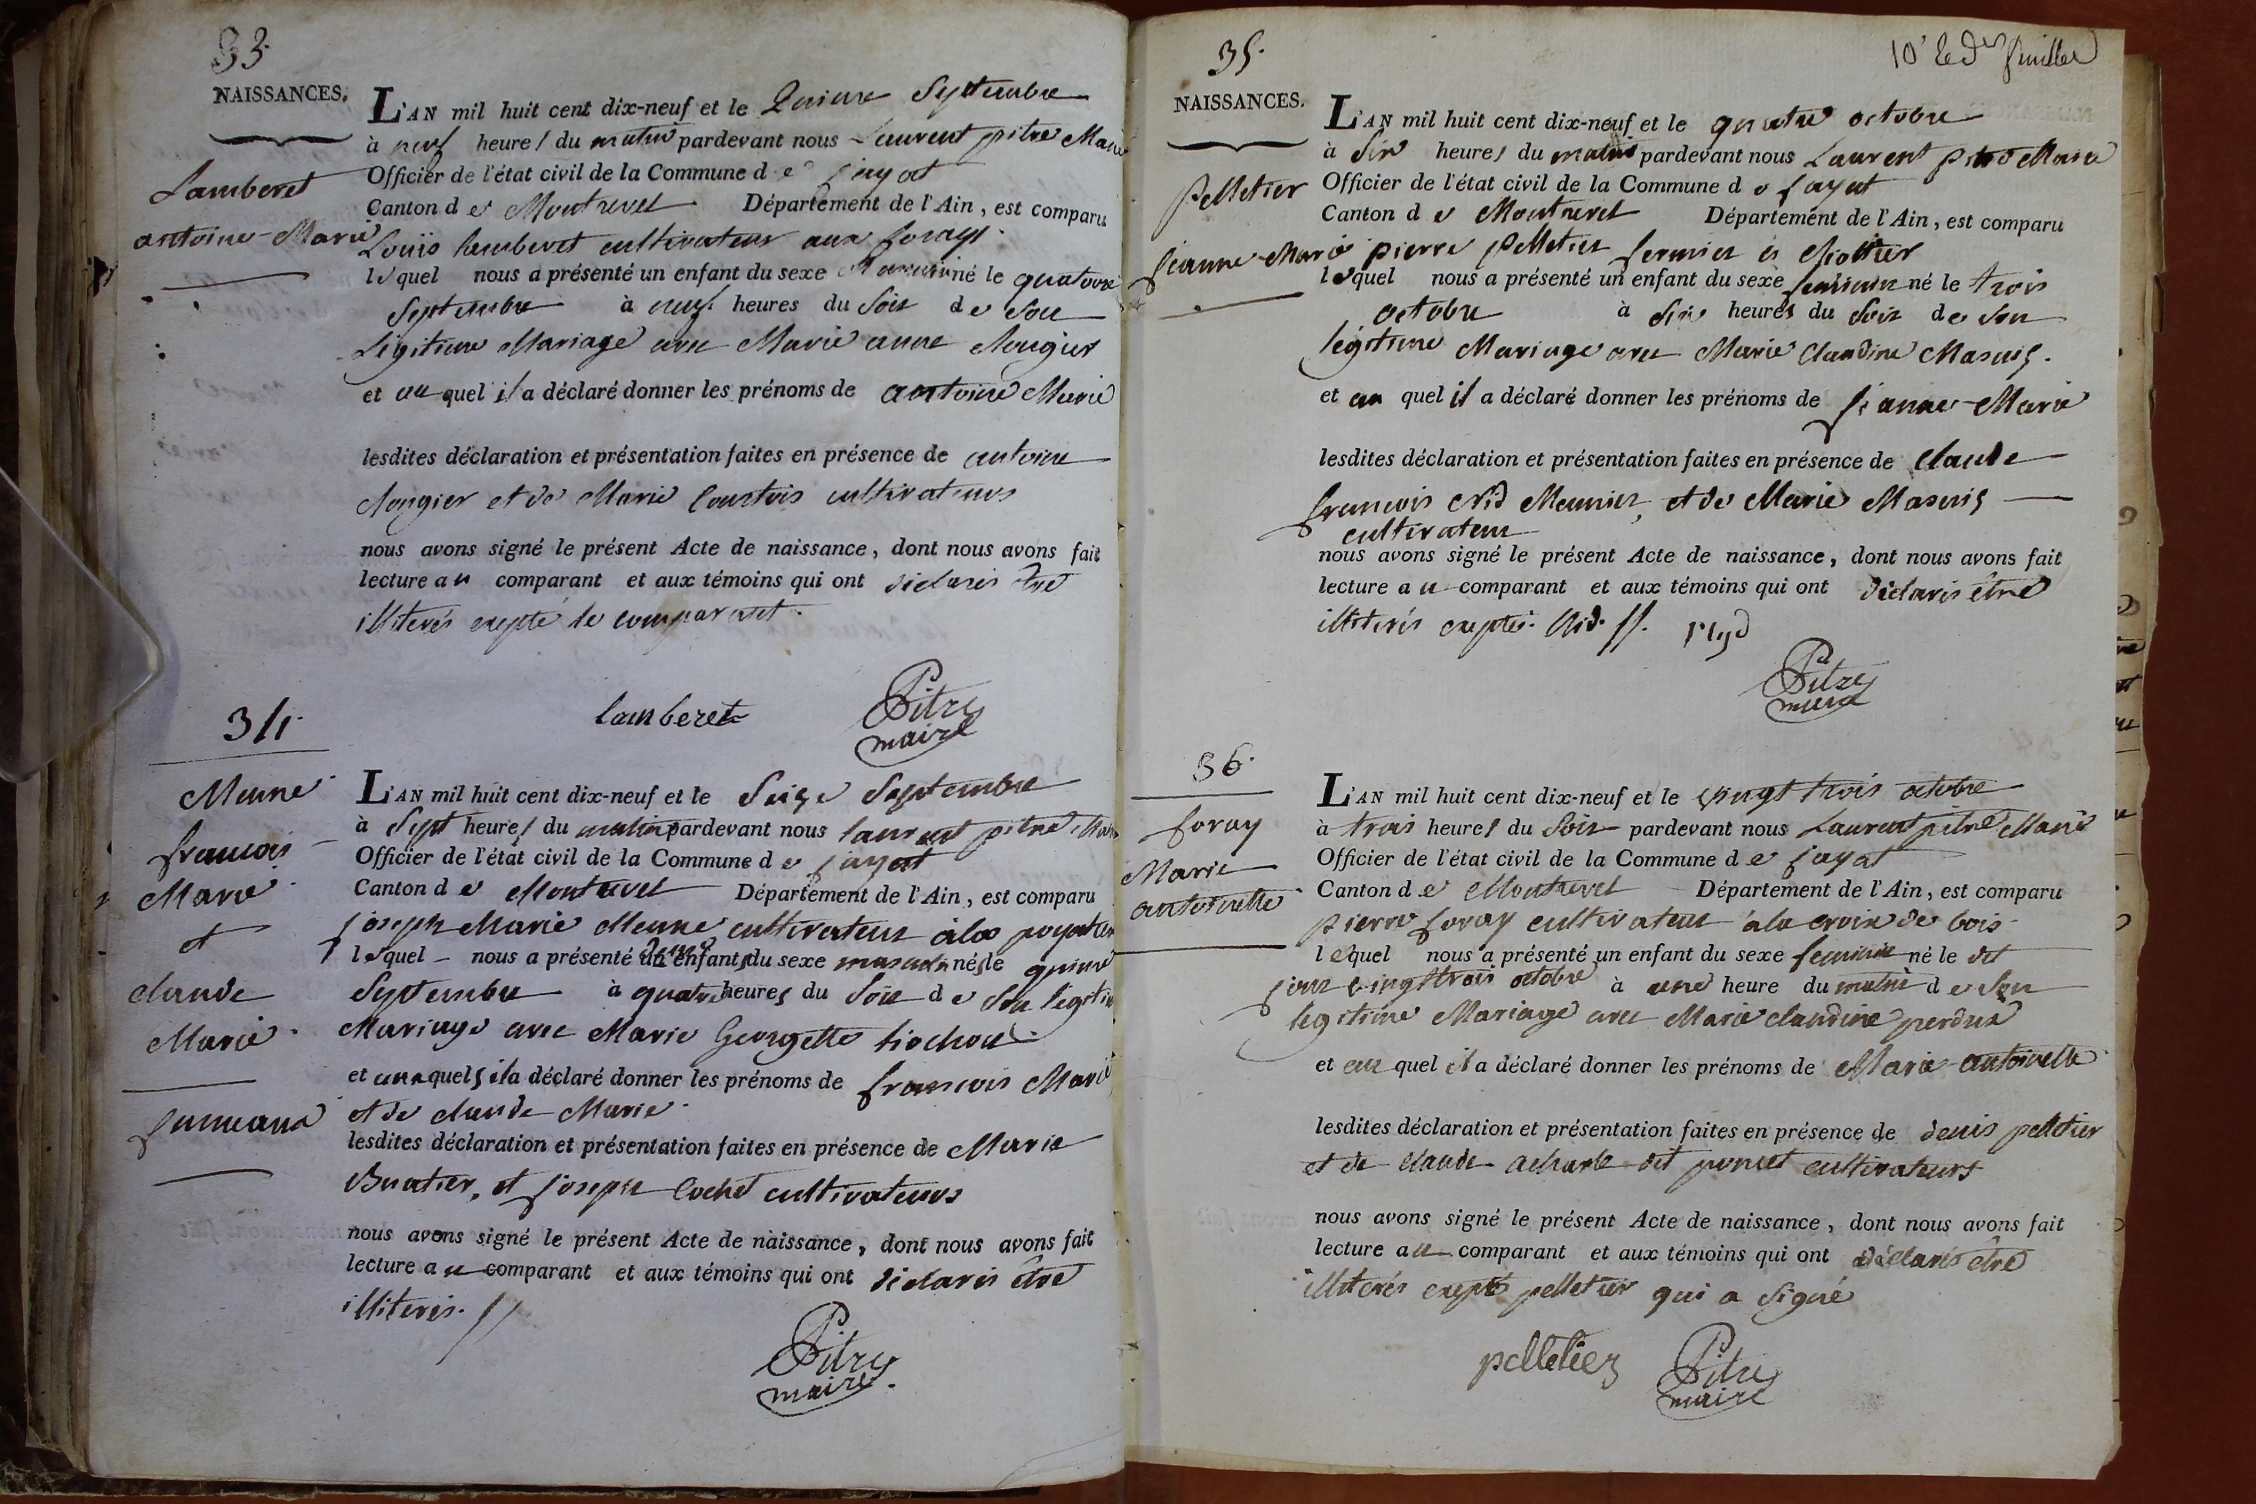 33.
NAISSANCES.
Lamberet
antoine-Marie
L'AN mil huit cent dix-neuf et le Quinze Septembre
à neuf heures du matin pardevant nous Laurent pitre Maire
Officier de l'état civil de la Commune de jayat
Canton de Montrevel Département de l'Ain, est comparu
Louis lamberet cultivateur aux forays
lequel nous a présenté un enfant du sexe masculin né le quatorze
Septembre à neuf heures du Soir de Son
Légitime Mariage avec Marie anne
et au quel il a déclaré donner les prénoms de antoine Marie
lesdites déclaration et présentation faites en présence de antoine
et de Marie Courtois cultivateurs
nous avons signé le présent Acte de naissance, dont nous avons fait
lecture au comparant et aux témoins qui ont déclarés être
illiterés exepté le comparant.
lamberet
Pitre
maire
34.
Meune
françois
Marie
et
claude
Marie
jumeaux
L'AN mil huit cent dix-neuf et le Seize Septembre
à Sept heures du matin pardevant nous laurent pitre Maire
Officier de l'état civil de la Commune de jayat
Canton de Montrevel Département de l'Ain, est comparu
joseph Marie Meune cultivateur à la
lequel nous a présenté deux enfants du sexe masculin nés le quinze
Septembre à quatre heures du Soir de Son légitime
Mariage avec Marie Georgette tiochon
et auxquels il a déclaré donner les prénoms de françois Marie
et de claude Marie
lesdites déclaration et présentation faites en présence de Marie
Buatier, et joseph Cochet cultivateurs
nous avons signé le présent Acte de naissance, dont nous avons fait
lecture au comparant et aux témoins qui ont déclarés être
illiterés.
Pitre
maire
10e et der feuillet
35.
NAISSANCES.
Pelletier
jeanne-Marie
L'AN mil huit cent dix-neuf et le quatre octobre
à Six heures du matin pardevant nous Laurent pitre Maire
Officier de l'état civil de la Commune de jayat
Canton de Montrevel Département de l'Ain, est comparu
pierre pelletier fermier à
lequel nous a présenté un enfant du sexe feminin né le trois
octobre à Six heures du Soir de Son
légitime Mariage avec Marie Claudine Masuis.
et au quel il a déclaré donner les prénoms de jeanne-Marie
lesdites déclaration et présentation faites en présence de Claude
françois Nid Meunier, et de Marie Masuis
cultivateur
nous avons signé le présent Acte de naissance, dont nous avons fait
lecture au comparant et aux témoins qui ont déclarés être
illiterés exeptés Nid.
Pitre
maire
36.
foray
Marie
antoinette
L'AN mil huit cent dix-neuf et le vingt trois octobre
à trois heures du Soir pardevant nous Laurent pitre Maire
Officier de l'état civil de la Commune de jayat
Canton de Montrevel Département de l'Ain, est comparu
pierre foray cultivateur à la croix de bois
lequel nous a présenté un enfant du sexe feminin né le dit
jour vingt trois octobre à une heure du matin de Son
légitime Mariage avec Marie claudine perdrix
et au quel il a déclaré donner les prénoms de Marie-antoinette
lesdites déclaration et présentation faites en présence de denis pelletier
et de claude acharle dit poncet cultivateurs
nous avons signé le présent Acte de naissance, dont nous avons fait
lecture au comparant et aux témoins qui ont déclarés être
illiterés exepté pelletier qui a Signé
pelletier
Pitre
maire